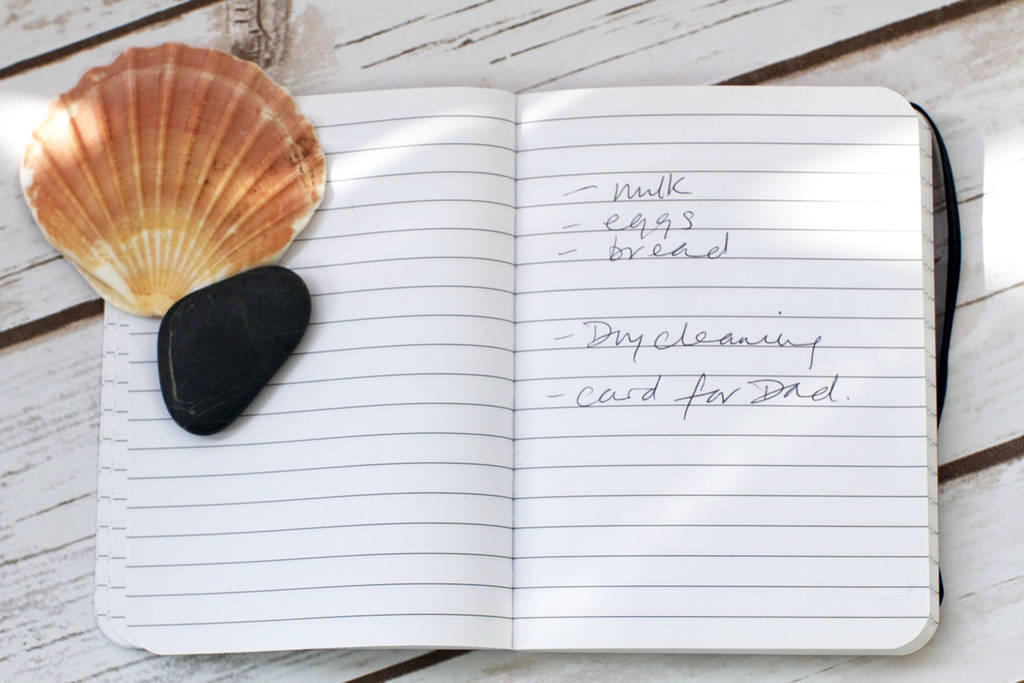 - milk
- eggs
- bread
- Drycleaning
- card for Dad.